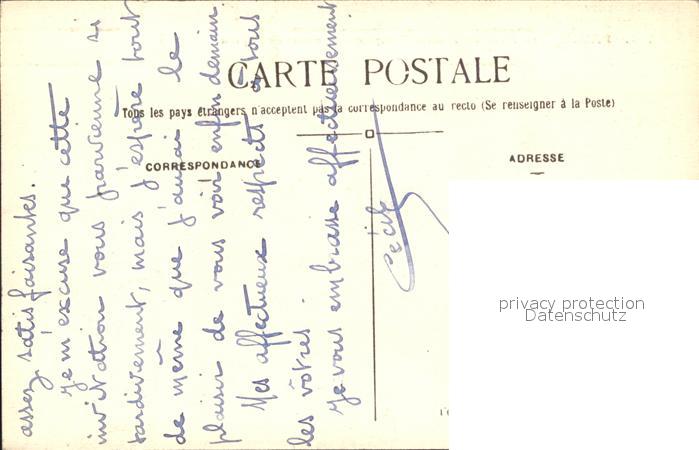 CARTE POSTALE
Tous les pays étrangers n'acceptent pas la correspondance au recto (Se renseigner à la Poste)
CORRESPONDANCE
ADRESSE
assez satisfaisantes.
Je m'excuse que cette
invitation vous parvienne si
tardivement, mais j'espère tout
de même que j'aurai le
plaisir de vous voir enfin demain
Mes affectueux respects à tous
les vôtres.
Je vous embrasse affectueusement
Cécile
privacy protection
Datenschutz